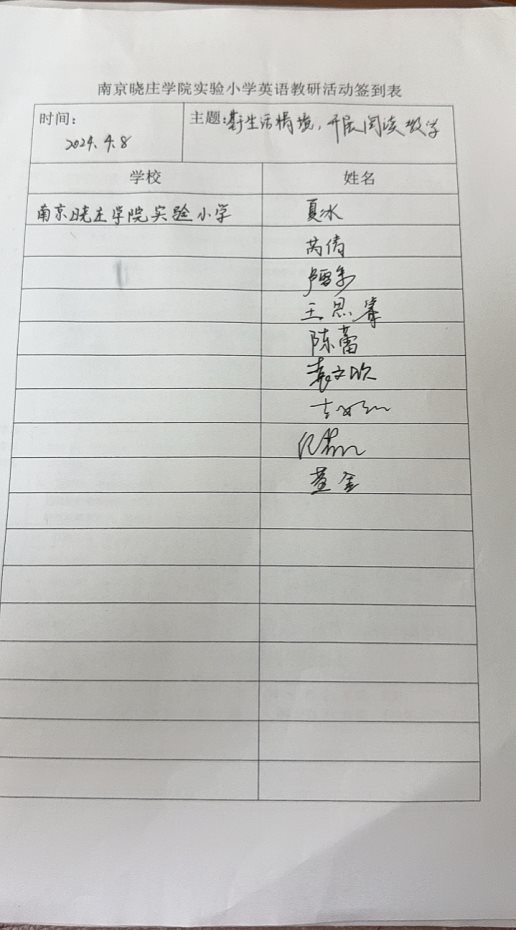 南京晓庄学院实验小学英语教研活动签到表
时间： 主题：基于生活情境，开展阅读教学
2024.4.8
学校 姓名
南京晓庄学院实验小学 夏冰
芮倩
王思
陈蕾
袁文欣
董金